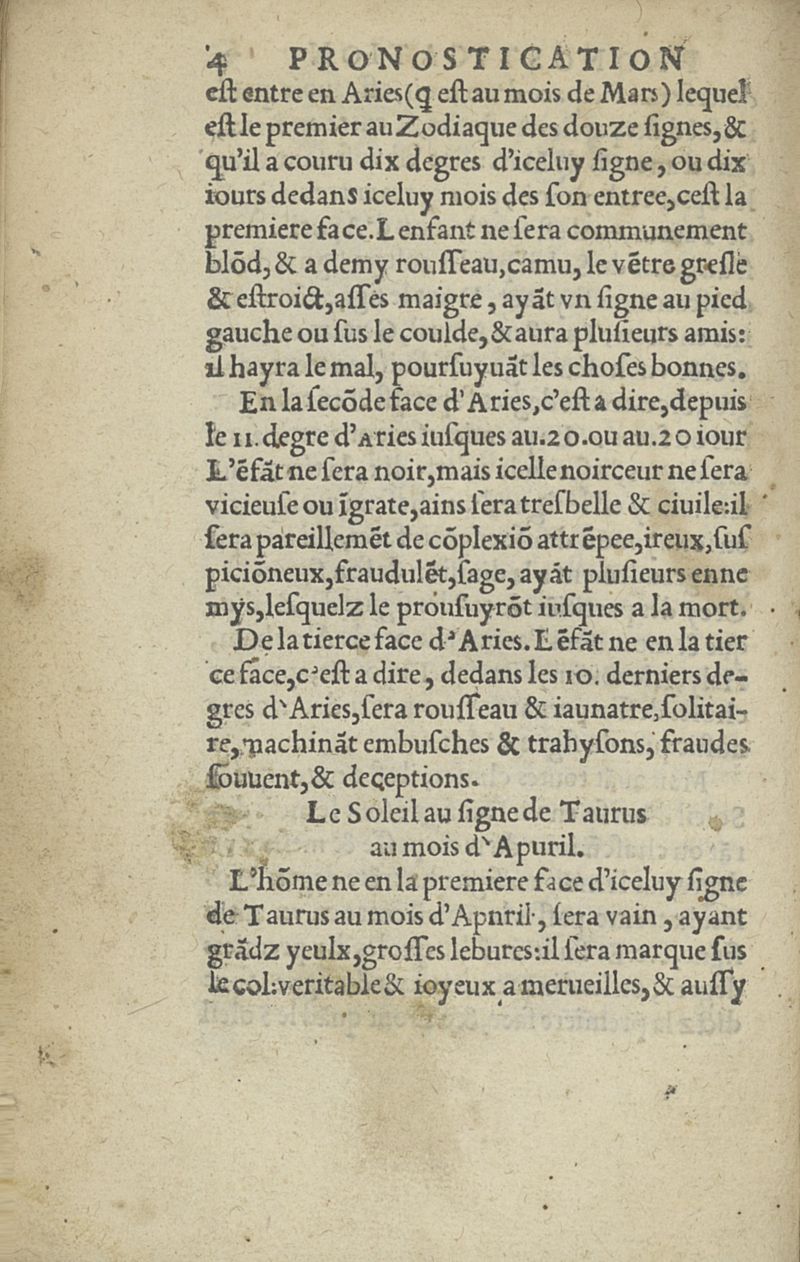 4 PRONOSTICATION
eſt entre en Aries(q̃ eſt au mois de Mars) lequel
eſt le premier au Zodiaque des douze ſignes,&
qu'il a couru dix degres d'iceluy ſigne, ou dix
iours dedans iceluy mois des ſon entree,ceſt la
premiere face. L enfant ne ſera communement
blõd,& a demy rouſſeau,camu, le vẽtre greſle
& eſtroict,aſſes maigre, ayãt vn ſigne au pied
gauche ou ſus le coulde,& aura pluſieurs amis:
il hayra le mal, pourſuyuãt les choſes bonnes.
En la ſecõde face d'Aries,c'eſt a dire,depuis
le 11. degre d'Aries iuſques au.20.ou au.20 iour
L'ẽfãt ne ſera noir,mais icelle noirceur ne ſera
vicieuſe ou ĩgrate,ains ſera treſbelle & ciuile:il
ſera pareillemẽt de cõplexiõ attrẽpee,ireux,ſuſ
piciõneux,fraudulẽt,ſage, ayãt pluſieurs enne
mys,leſquelz le prouſuyrõt iuſques a la mort.
De la tierce face d'Aries. L ẽfãt ne en la tier
ce face,c'eſt a dire, dedans les 10. derniers de-
gres d'Aries,ſera rouſſeau & iaunatre,ſolitai-
re, machinãt embuſches & trahyſons, fraudes
ſouuent,& deceptions.
Le Soleil au ſigne de Taurus
au mois d'Apuril.
L'hõme ne en la premiere face d'iceluy ſigne
de Taurus au mois d'Apuril, ſera vain, ayant
grãdz yeulx,groſſes lebures:il ſera marque ſus
le col:veritable & ioyeux a merueilles,& auſſy